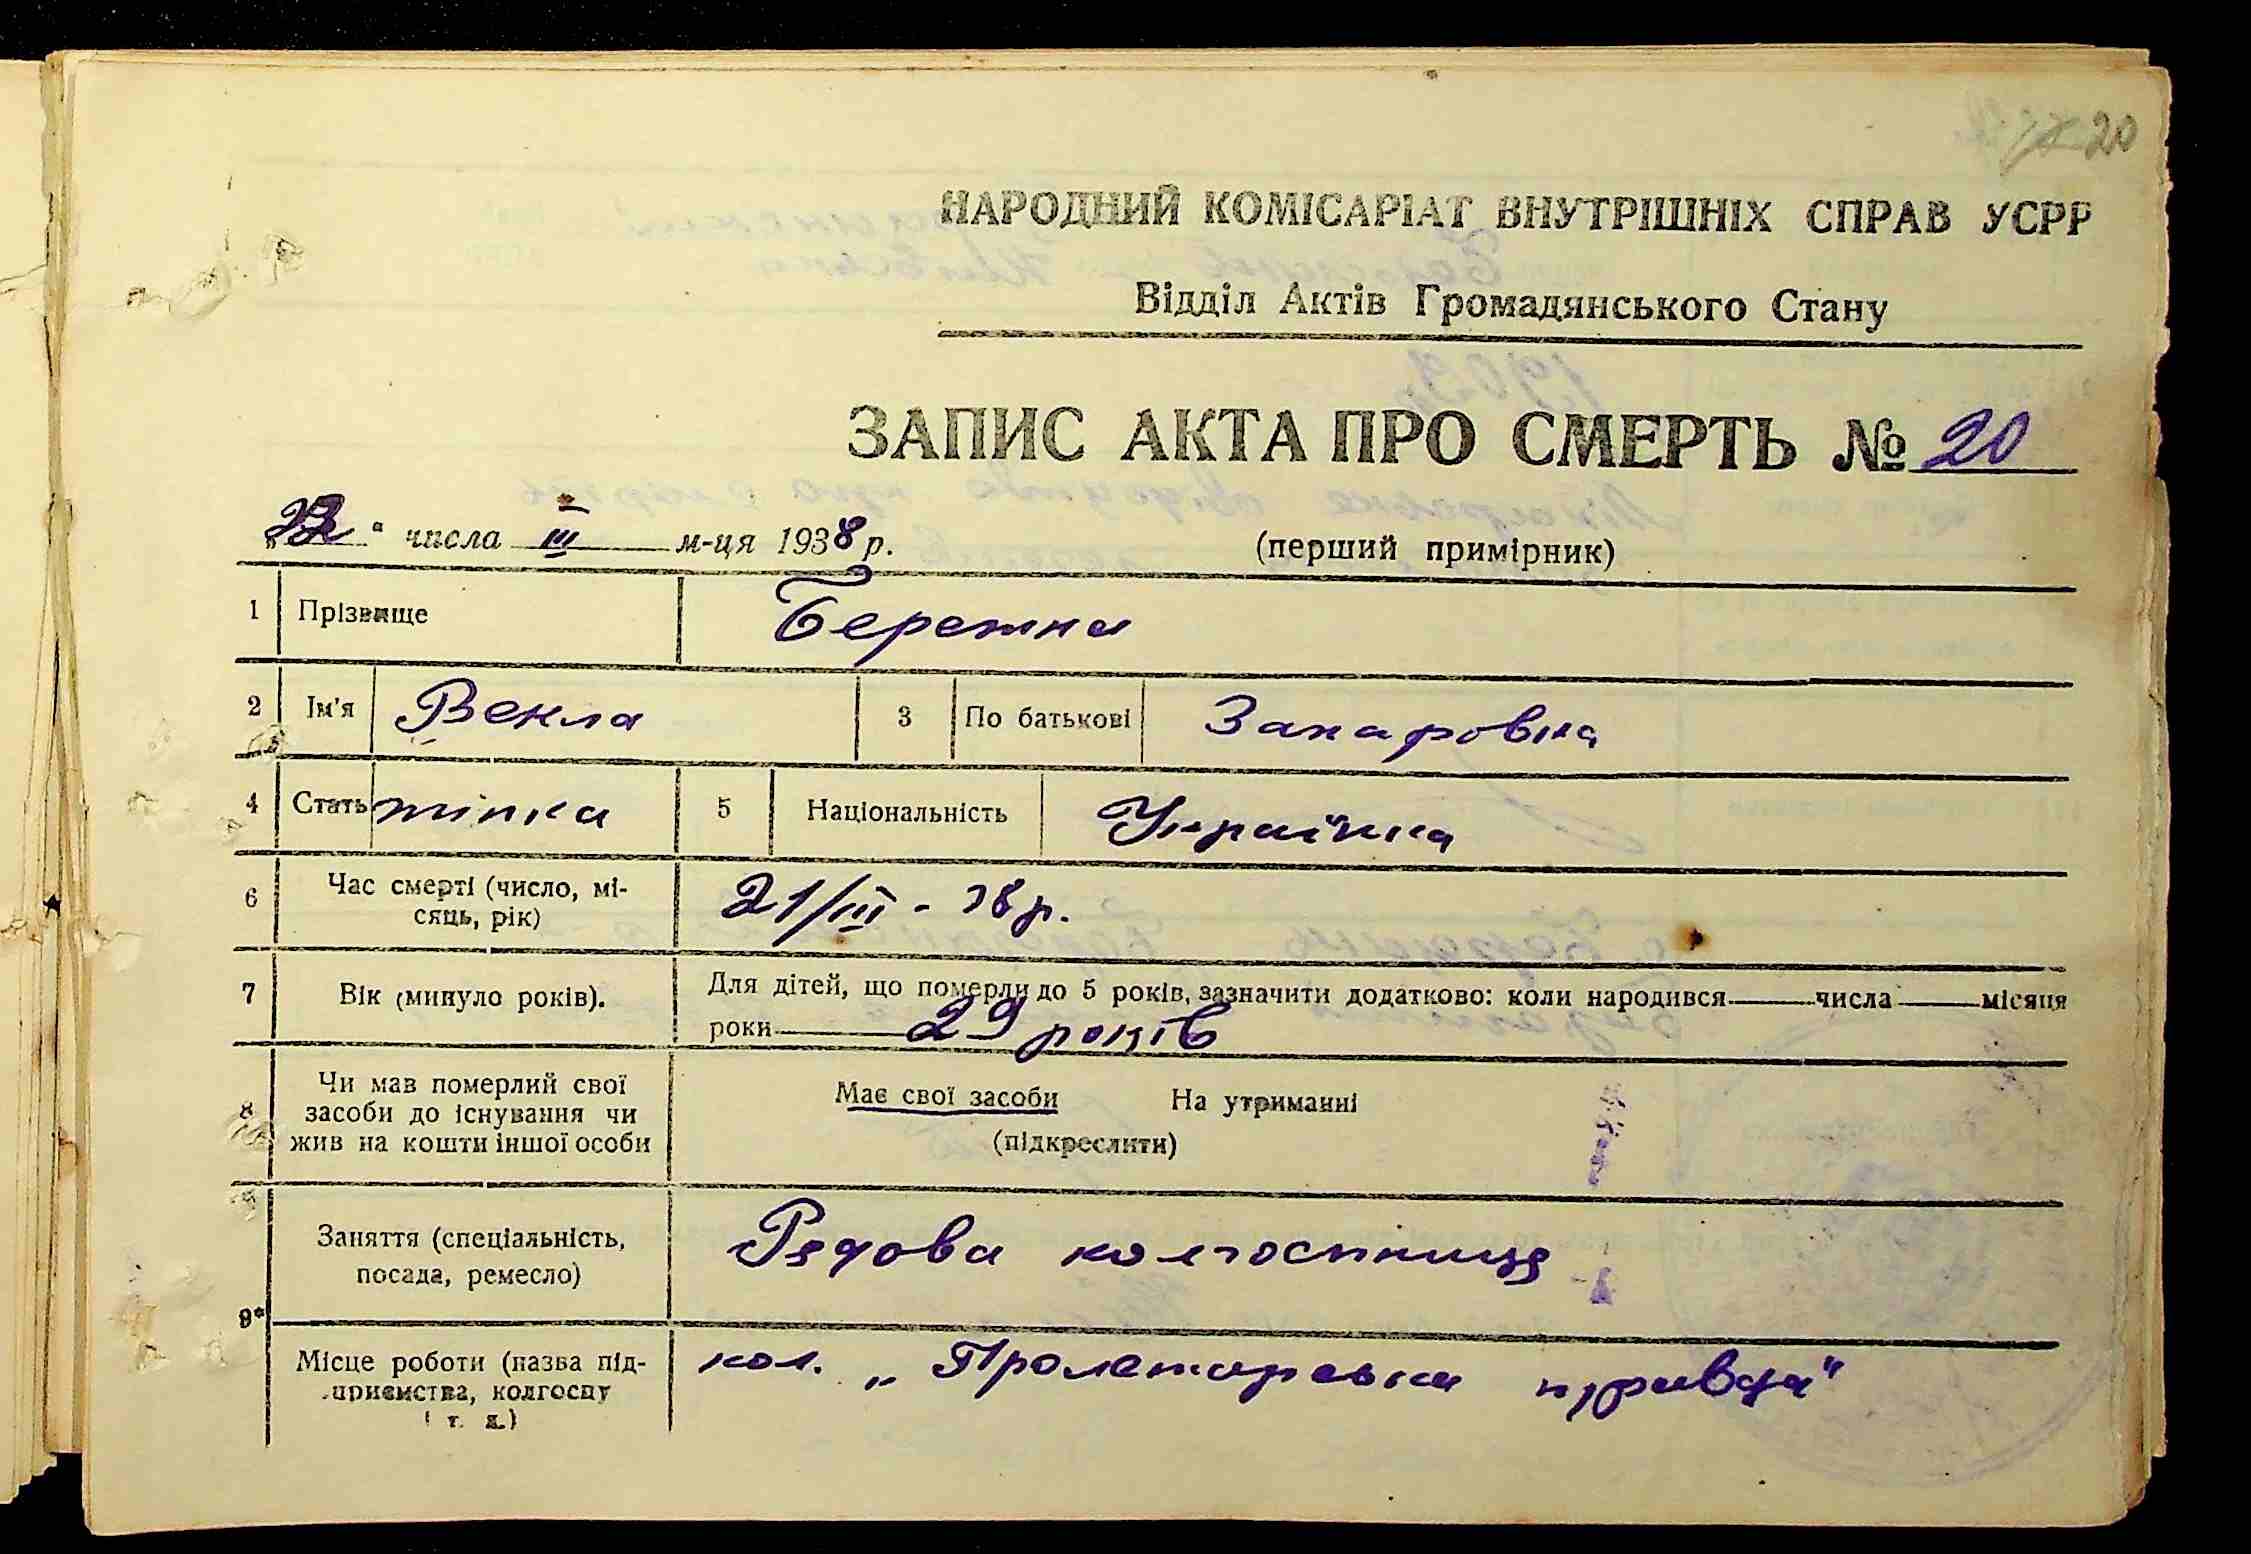 20
НАРОДНИЙ КОМІСАРІАТ ВНУТРІШНІХ СПРАВ УСРР
Відділ Актів Громадянського Стану
ЗАПИС АКТА ПРО СМЕРТЬ № 20
„22“ числа III м-ця 1938 р. (перший примірник)
1 Прізвище Бережна
2 Ім'я Векла 3 По батькові Захаровна
4 Стать жінка 5 Національність Українка
6 Час смерті (число, мі-
сяць, рік) 21/III - 38 р.
7 Вік (минуло років). Для дітей, що померли до 5 років, зазначити додатково: коли народився числа місяця
роки 29 років
8 Чи мав померлий свої
засоби до існування чи
жив на кошти іншої особи
Має свої засоби На утриманні
(підкреслити)
Заняття (спеціальність,
посада, ремесло) Рядова колгоспниця
9*
Місце роботи (назва під-
приємства, колгоспу
і т. д.) кол. „Пролетарська правда"